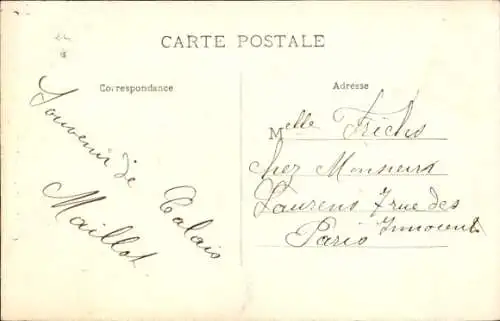 CARTE POSTALE
Correspondance
Souvenir de Calais
Maillot
Adresse
Melle
Chez Monsieur
Laurens 7 rue des
Innocents
Paris